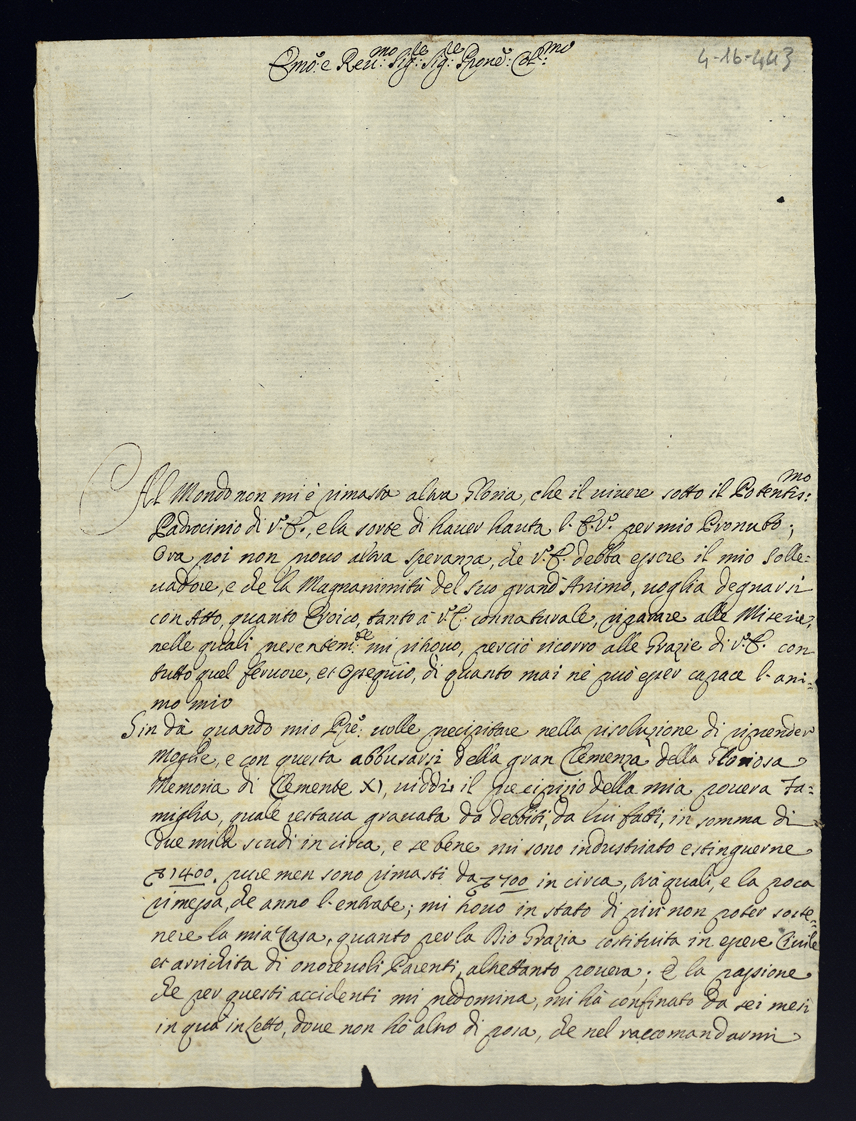 Emo: e Reu:mo Sig:re Sig:re Prone: Col:mo
4-16-443
Al Mondo non mi è rimasta altra Gloria, che il uiuere sotto il Potentis:mo
Padrocinio di V.E., e la sorte di hauer hauta l'E.V. per mio Pronubo;
Ora poi non prouo altra speranza, che V.E. debba essere il mio Solle-
uadore, e che la Magnanimità del suo grand'Animo, uoglia degnarsi
con Atto, quanto Eroico, tanto à V.E. connaturale, riparare alle Miserie,
nelle quali presentem:te mi ritrouo, perciò ricorro alle Grazie di V.E. con
tutto quel feruore, et Ossequio, di quanto mai ne può esser capace l'ani-
mo mio
Sin dà quando mio Pre: uolle precipitare nella risoluzione di riprender
Moglie, e con questa abbusarsi della gran Clemenza della Gloriosa
Memoria di Clemente XI, uiddi il precipizio della mia pouera Fa-
miglia, quale restaua grauata da debbiti, da lui fatti, in somma di
due mila scudi in circa, e se bene mi sono industriato estinguerne
1400. pure men sono rimasti da 700 in circa, trà quali, e la poca
rimessa, che anno l'entrate; mi trouo in stato di più non poter soste-
nere la mia Casa, quanto per la Dio Grazia costituita in essere Ciuile
et arrichita di onoreuoli Parenti, altrettanto pouera; E la passione
che per questi accidenti mi predomina, mi hà confinato da sei mesi
in quà in Letto, doue non hò altro di posa, che nel raccomandarmi